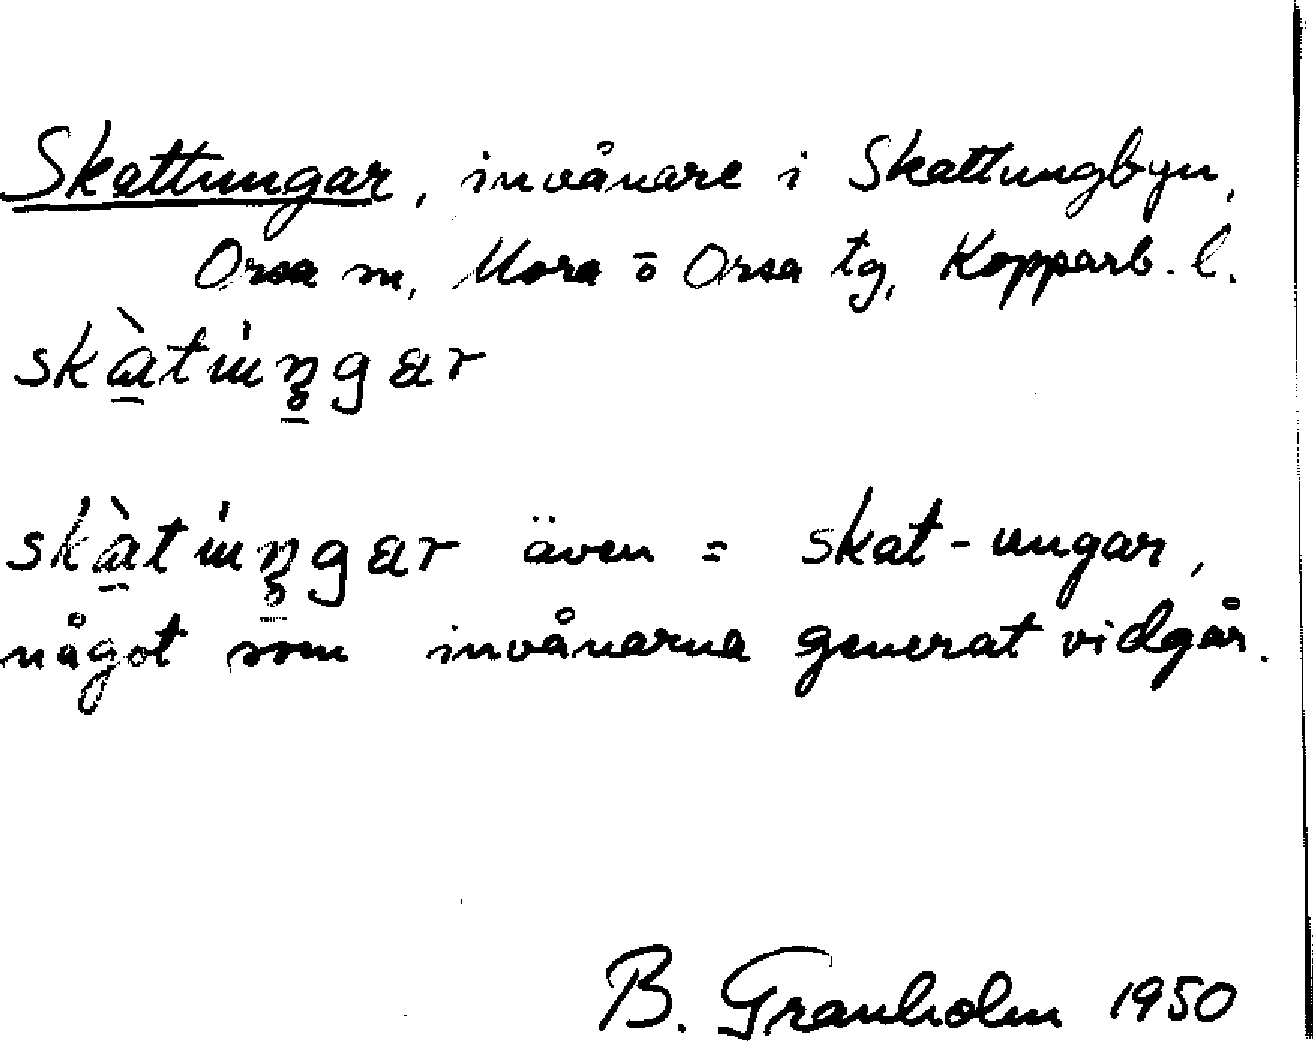 Skattungar, invånare i Skattungbyn,
Orsa sn, Mora o Orsa tg, Kopparb. l.
skàtuŋgar
skàtuŋgar även = skat-ungar,
något som invånarna generat vidgår.
B. Granholm 1950